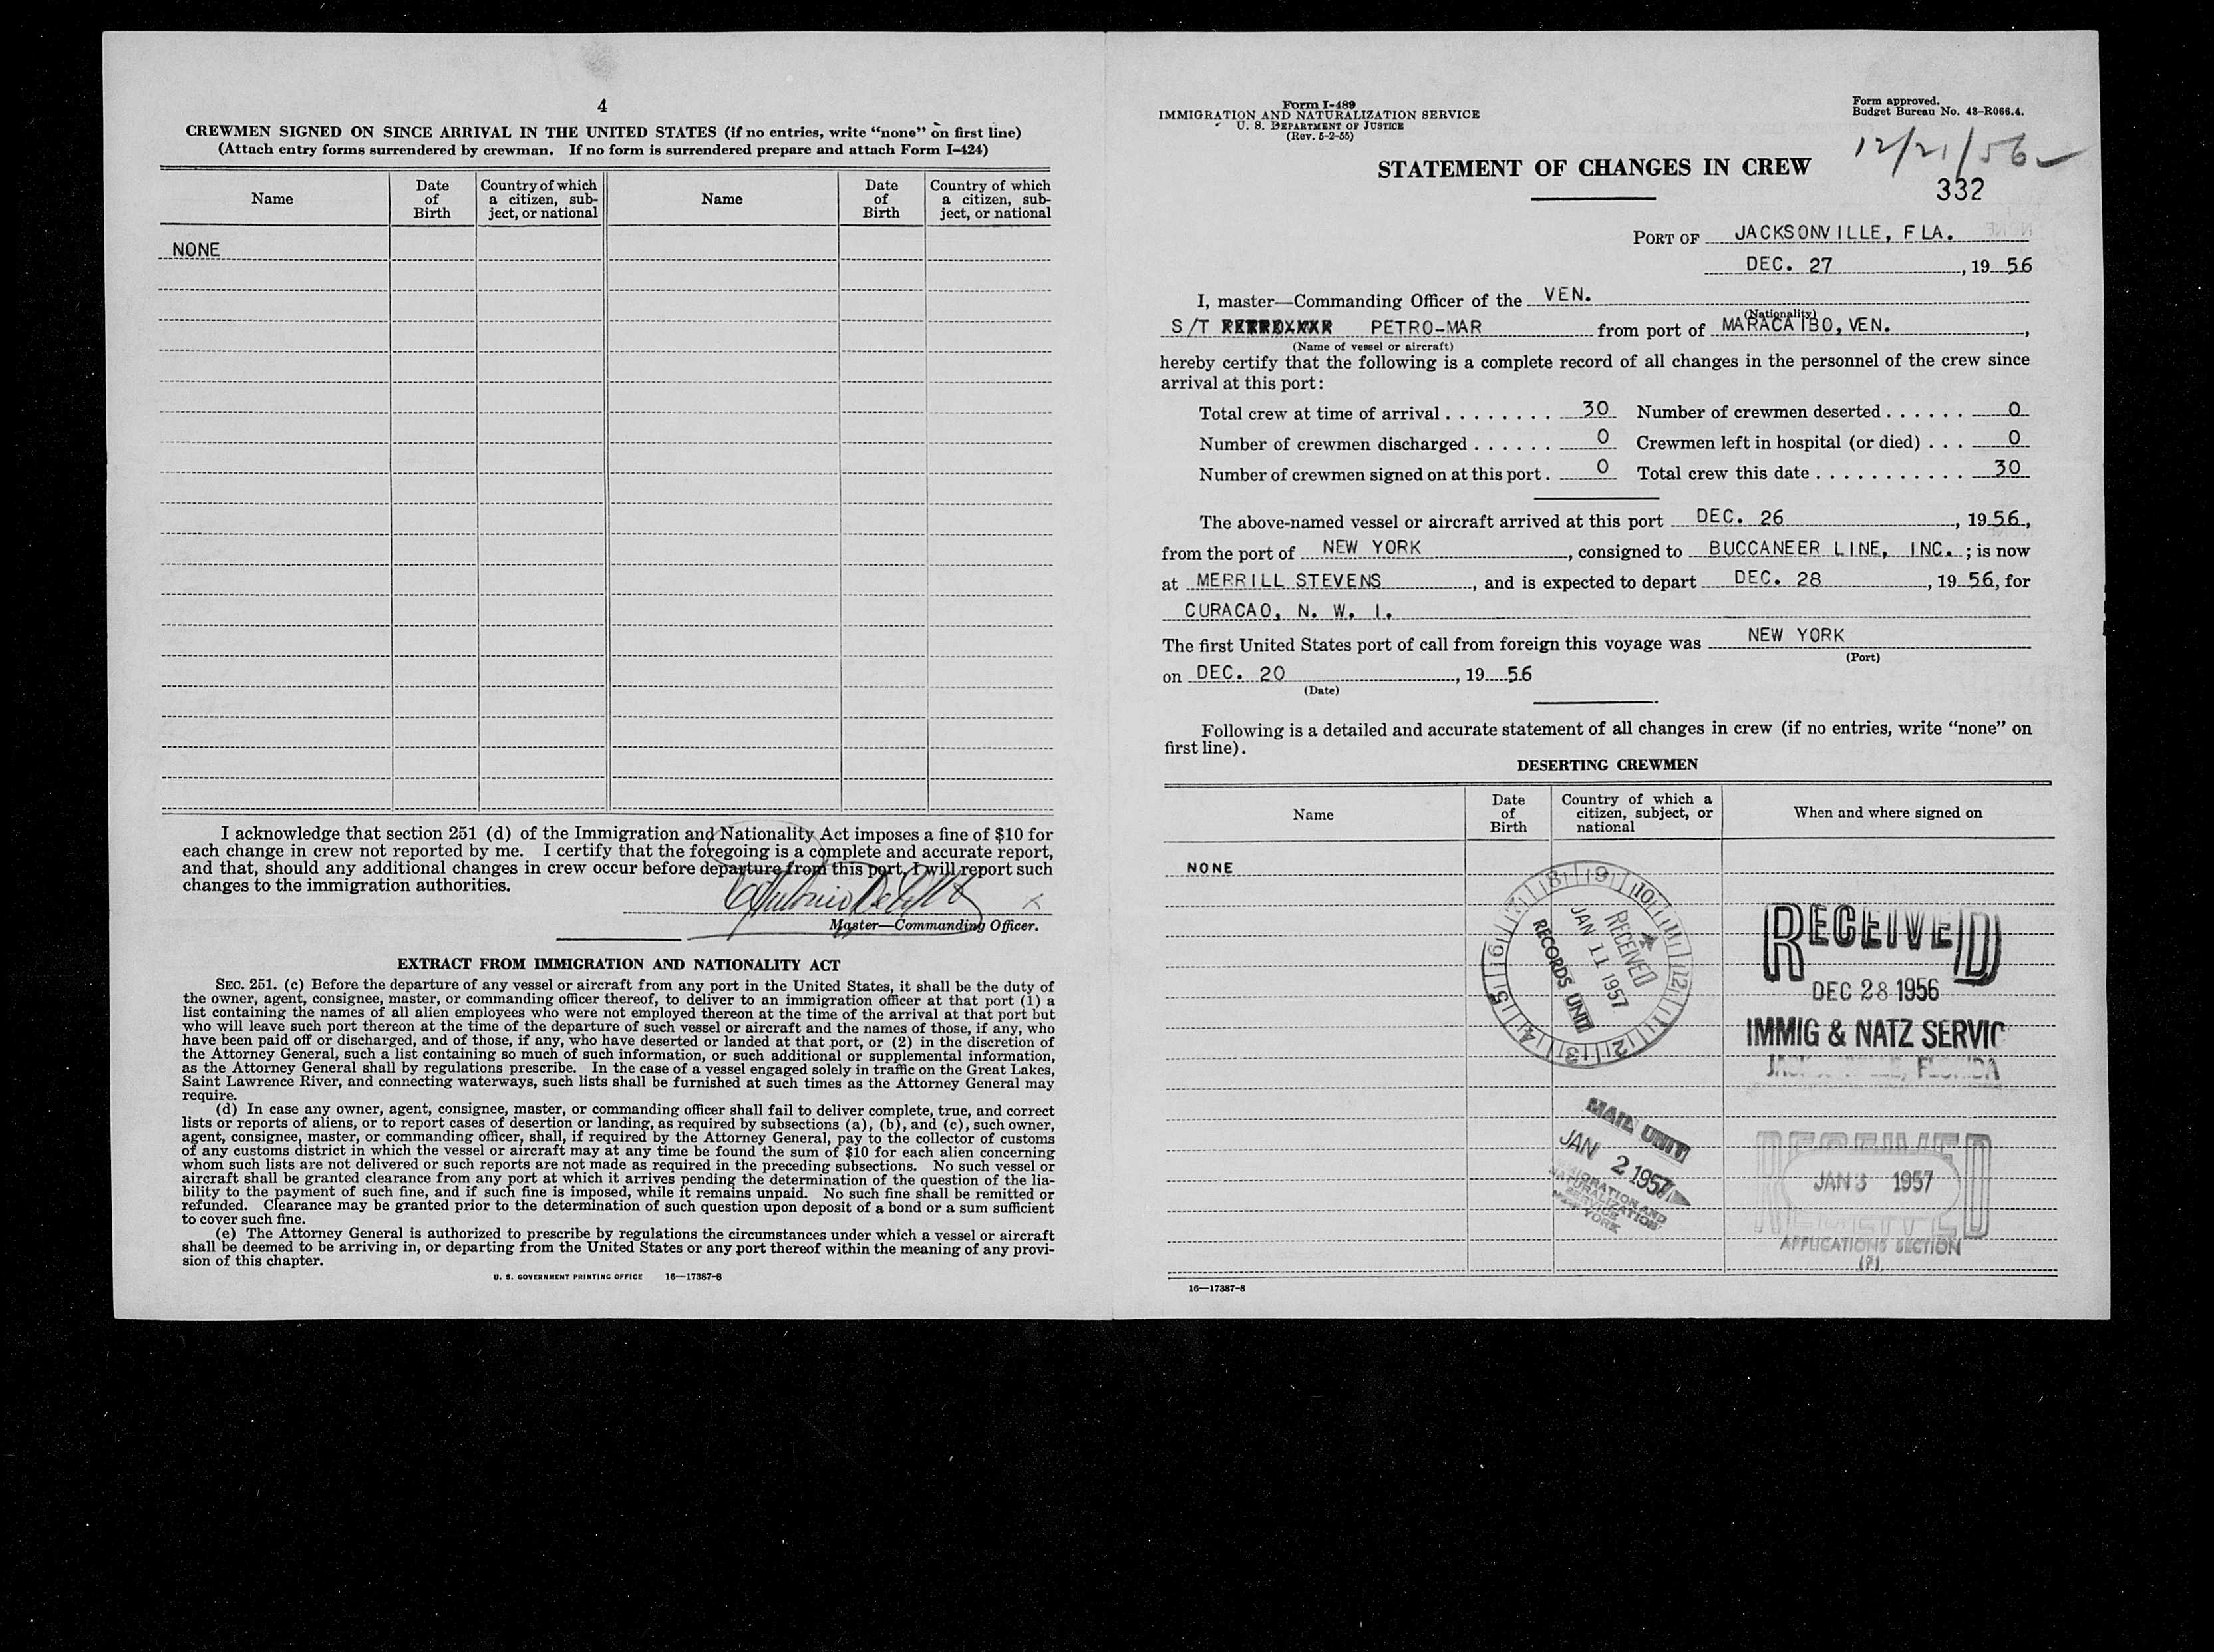 4
CREWMEN SIGNED ON SINCE ARRIVAL IN THE UNITED STATES (if no entries, write “none” on first line)
(Attach entry forms surrendered by crewman. If no form is surrendered prepare and attach Form I-424)
Name Date of Birth Country of which a citizen, subject, or national Name Date of Birth Country of which a citizen, subject, or national
NONE
I acknowledge that section 251 (d) of the Immigration and Nationality Act imposes a fine of $10 for
each change in crew not reported by me. I certify that the foregoing is a complete and accurate report,
and that, should any additional changes in crew occur before departure from this port, I will report such
changes to the immigration authorities.
Antonio
Master—Commanding Officer.
EXTRACT FROM IMMIGRATION AND NATIONALITY ACT
SEC. 251. (c) Before the departure of any vessel or aircraft from any port in the United States, it shall be the duty of
the owner, agent, consignee, master, or commanding officer thereof, to deliver to an immigration officer at that port (1) a
list containing the names of all alien employees who were not employed thereon at the time of the arrival at that port but
who will leave such port thereon at the time of the departure of such vessel or aircraft and the names of those, if any, who
have been paid off or discharged, and of those, if any, who have deserted or landed at that port, or (2) in the discretion of
the Attorney General, such a list containing so much of such information, or such additional or supplemental information,
as the Attorney General shall by regulations prescribe. In the case of a vessel engaged solely in traffic on the Great Lakes,
Saint Lawrence River, and connecting waterways, such lists shall be furnished at such times as the Attorney General may
require.
(d) In case any owner, agent, consignee, master, or commanding officer shall fail to deliver complete, true, and correct
lists or reports of aliens, or to report cases of desertion or landing, as required by subsections (a), (b), and (c), such owner,
agent, consignee, master, or commanding officer, shall, if required by the Attorney General, pay to the collector of customs
of any customs district in which the vessel or aircraft may at any time be found the sum of $10 for each alien concerning
whom such lists are not delivered or such reports are not made as required in the preceding subsections. No such vessel or
aircraft shall be granted clearance from any port at which it arrives pending the determination of the question of the lia-
bility to the payment of such fine, and if such fine is imposed, while it remains unpaid. No such fine shall be remitted or
refunded. Clearance may be granted prior to the determination of such question upon deposit of a bond or a sum sufficient
to cover such fine.
(e) The Attorney General is authorized to prescribe by regulations the circumstances under which a vessel or aircraft
shall be deemed to be arriving in, or departing from the United States or any port thereof within the meaning of any provi-
sion of this chapter.
U. S. GOVERNMENT PRINTING OFFICE 16—17387-8
Form I-489
IMMIGRATION AND NATURALIZATION SERVICE
U. S. DEPARTMENT OF JUSTICE
(Rev. 5-2-55)
Form approved.
Budget Bureau No. 43-R066.4.
12/21/56
STATEMENT OF CHANGES IN CREW
332
PORT OF JACKSONVILLE, FLA.
DEC. 27, 19 56
I, master—Commanding Officer of the VEN.
(Nationality)
S/T PETRO-MAR from port of MARACAIBO, VEN.,
(Name of vessel or aircraft)
hereby certify that the following is a complete record of all changes in the personnel of the crew since
arrival at this port:
Total crew at time of arrival ........ 30 Number of crewmen deserted ...... 0
Number of crewmen discharged ...... 0 Crewmen left in hospital (or died) ... 0
Number of crewmen signed on at this port. 0 Total crew this date ........... 30
The above-named vessel or aircraft arrived at this port DEC. 26, 19 56,
from the port of NEW YORK, consigned to BUCCANEER LINE, INC.; is now
at MERRILL STEVENS, and is expected to depart DEC. 28, 19 56, for
CURACAO, N. W. I.
The first United States port of call from foreign this voyage was NEW YORK
(Port)
on DEC. 20, 19 56
(Date)
Following is a detailed and accurate statement of all changes in crew (if no entries, write “none” on
first line).
DESERTING CREWMEN
Name Date of Birth Country of which a citizen, subject, or national When and where signed on
NONE
RECEIVED
JAN 11 1957
RECORDS UNIT
8 9 10 11 12 1 2 3 4 5 6 7
RECEIVED
DEC 28 1956
IMMIG & NATZ SERVIC
JACKSONVILLE, FLORIDA
MAIL UNIT
JAN 2 1957
IMMIGRATION AND
NATURALIZATION
SERVICE
NEW YORK
RECEIVED
JAN 3 1957
APPLICATIONS SECTION
16—17387-8